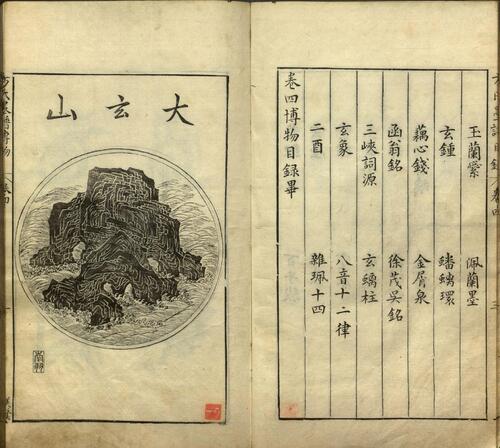 玉蘭 佩蘭墨
玄鍾 蟠螭環
藕心錢 金屑泉
函翁銘 徐茂吳銘
三峽詞源 玄螭柱
玄象 八音十二律
二酉 雜珮十四
卷四博物目録畢
大玄山
方氏墨譜博物 卷四